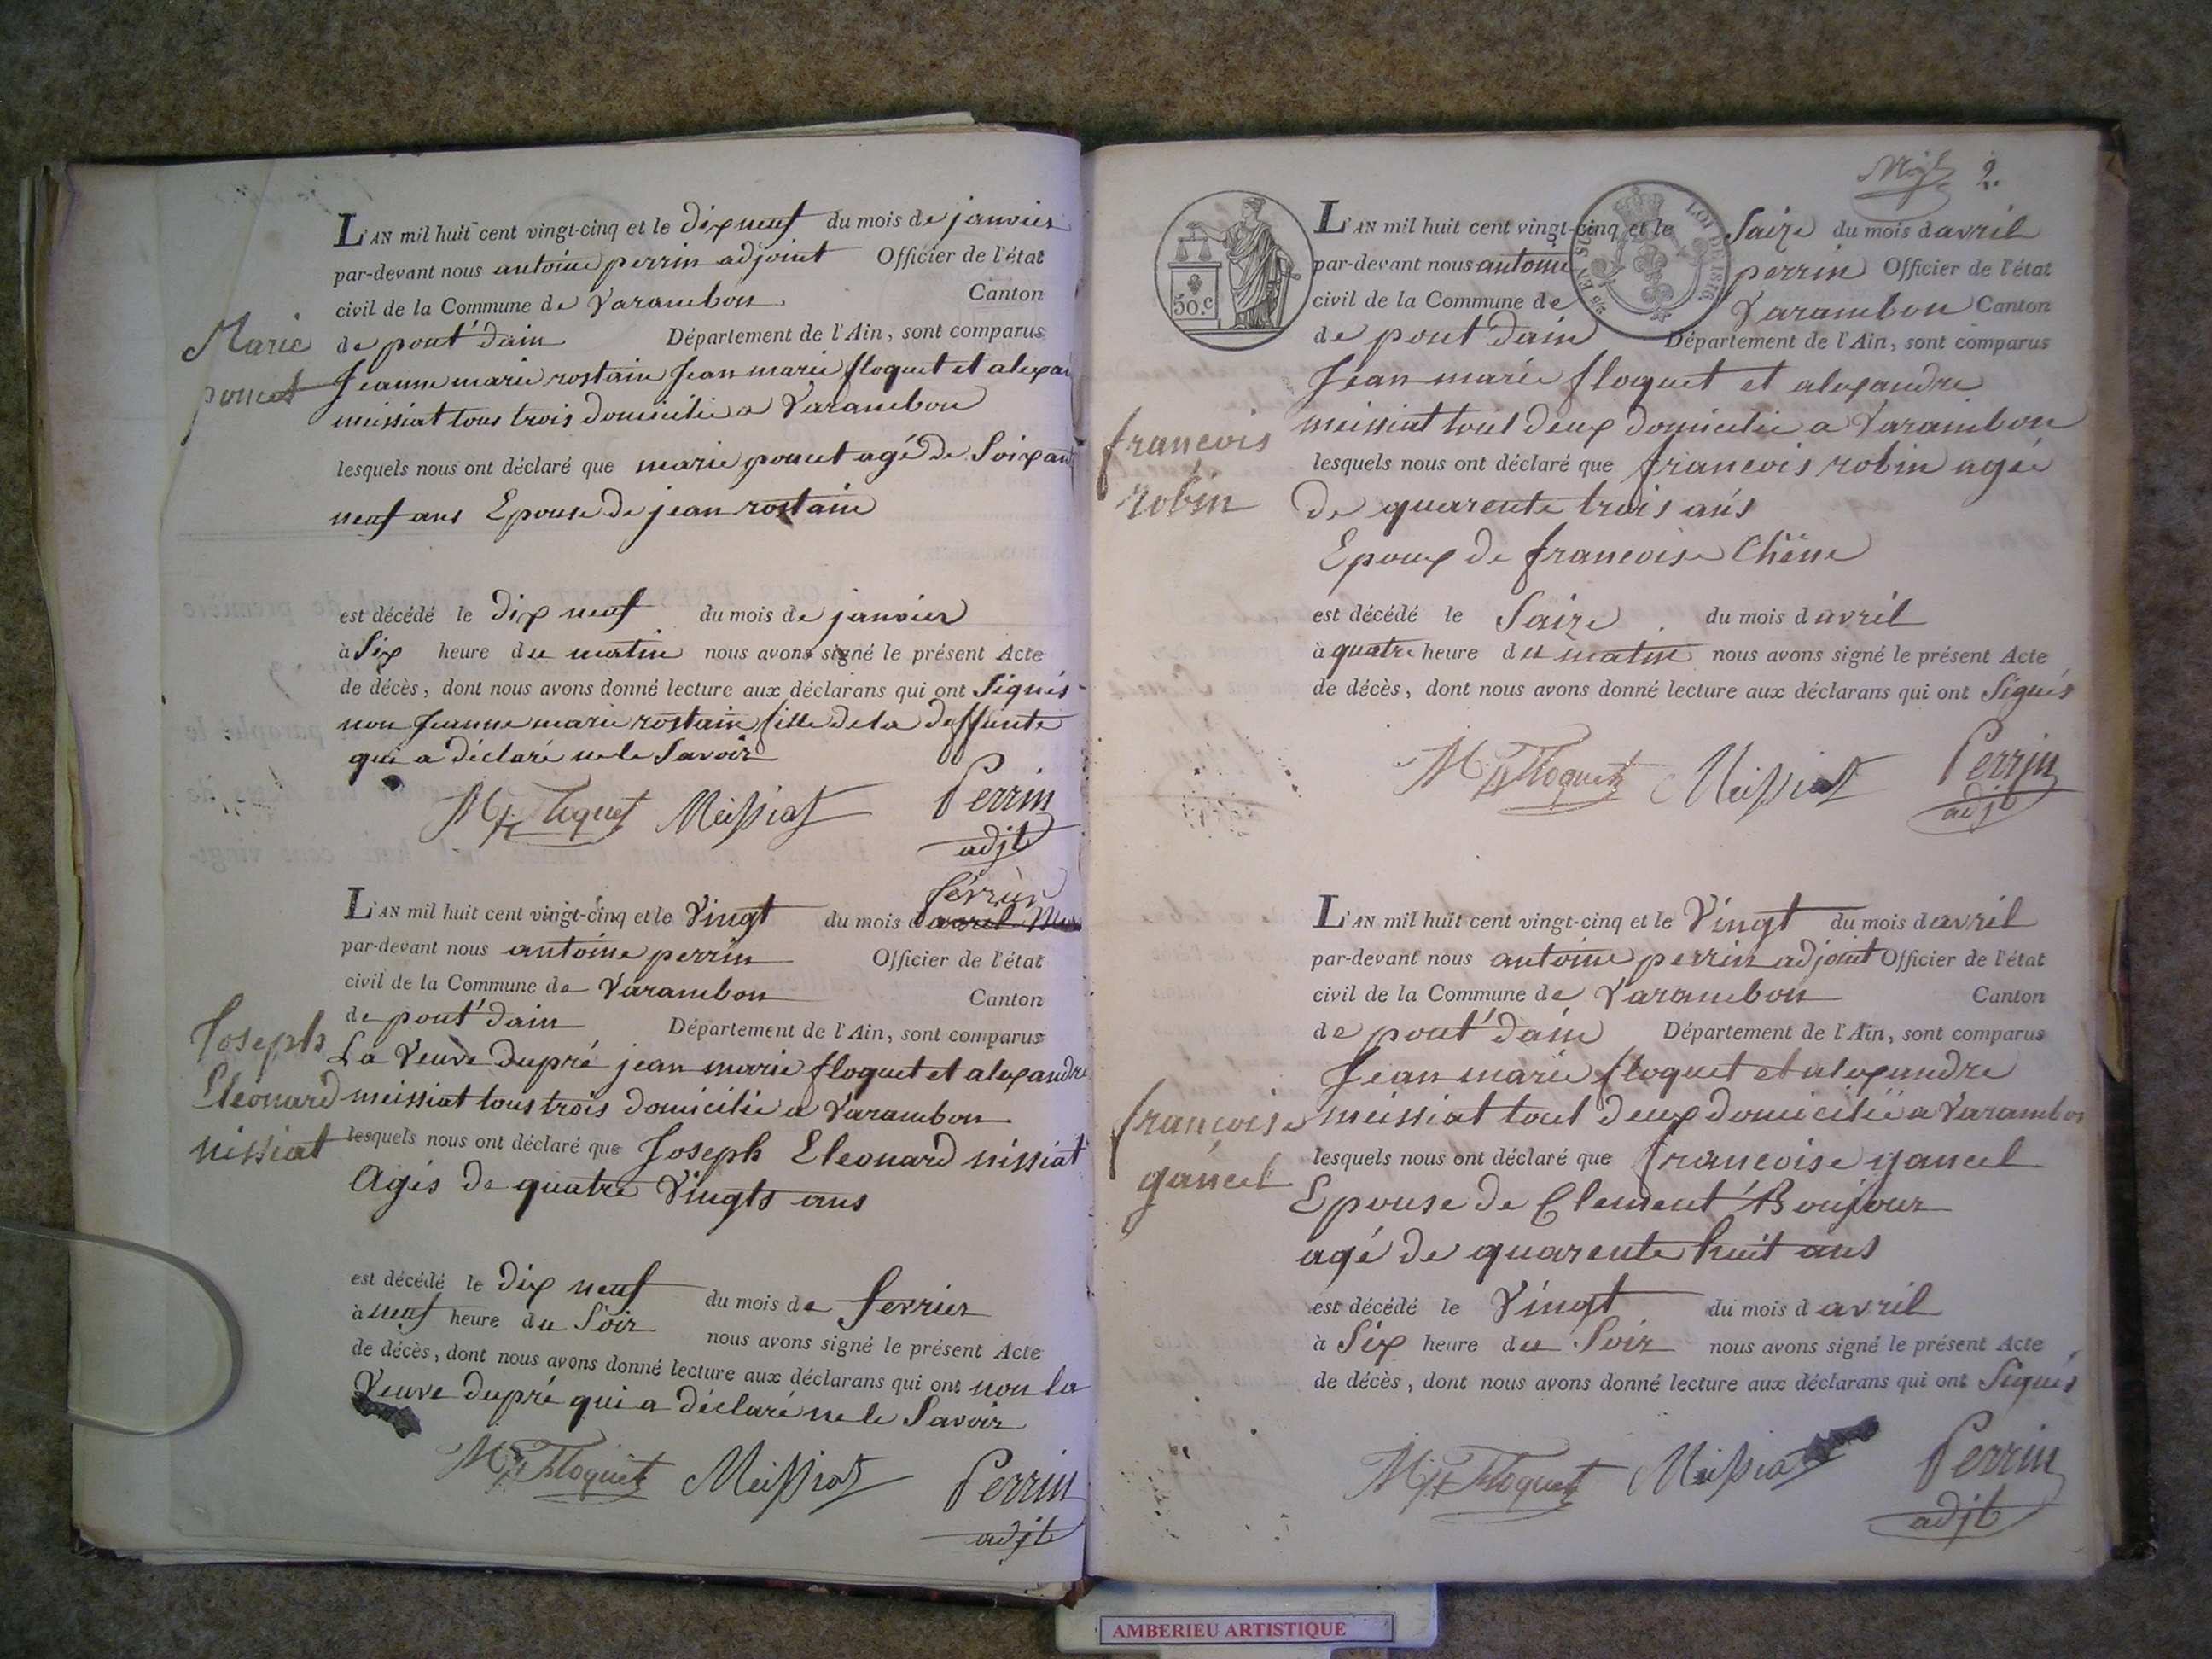 L'AN mil huit cent vingt-cinq et le dix neuf du mois de janvier
par-devant nous antoine perrin adjoint Officier de l'état
civil de la Commune de Varambon Canton
de pont d'ain Département de l'Ain, sont comparus
Jeanne marie rostain Jean marie floquet et alexan
meissiat tous trois domicilié a Varambon
lesquels nous ont déclaré que marie poncet agé de Soixant
neuf ans Epouse de jean rostain
Marie
poncet
est décédé le dix neuf du mois de janvier
à Six heure du matin nous avons signé le présent Acte
de décès, dont nous avons donné lecture aux déclarans qui ont Signés
non Jeanne marie rostain fille de la deffunte
qui a déclaré ne le Savoir
Floquet Meissiat Perrin
adjt
février
L'AN mil huit cent vingt-cinq et le Vingt du mois d avril
par-devant nous antoine perrin Officier de l'état
civil de la Commune de Varambon Canton
de pont d'ain Département de l'Ain, sont comparus
La Veuve dupré jean marie floquet et alexandre
meissiat tous trois domicilié a Varambon
lesquels nous ont déclaré que Joseph Eleonard nissiat
Agés de quatre Vingts ans
Joseph
Eleonard
nissiat
est décédé le dix neuf du mois de ferrier
à neuf heure du Soir nous avons signé le présent Acte
de décès, dont nous avons donné lecture aux déclarans qui ont non la
Veuve dupré qui a déclaré ne le Savoir
Floquet Meissiat Perrin
adjt
2.
50.c
LOI DE 1816
EN SUS
L'AN mil huit cent vingt-cinq et le Saize du mois d avril
par-devant nous antoine perrin Officier de l'état
civil de la Commune de Varambon Canton
de pont d'ain Département de l'Ain, sont comparus
Jean marie floquet et alexandre
meissiat tout deux domicilié a Varambon
lesquels nous ont déclaré que francois robin agée
de quarente trois ans
Epoux de francoise Chêne
francois
robin
est décédé le Saize du mois d avril
à quatre heure du matin nous avons signé le présent Acte
de décès, dont nous avons donné lecture aux déclarans qui ont Signés
Floquet Meissiat Perrin
adjt
L'AN mil huit cent vingt-cinq et le Vingt du mois d avril
par-devant nous antoine perrin adjoint Officier de l'état
civil de la Commune de Varambon Canton
de pont d'ain Département de l'Ain, sont comparus
Jean marie floquet et alexandre
meissiat tout deux domicilié a Varambon
lesquels nous ont déclaré que francoise gancel
Epouse de Clement Boujour
agé de quarente huit ans
francoise
gancel
est décédé le Vingt du mois d avril
à Six heure du Soir nous avons signé le présent Acte
de décès, dont nous avons donné lecture aux déclarans qui ont Signés
Floquet Meissiat Perrin
adjt
AMBERIEU ARTISTIQUE